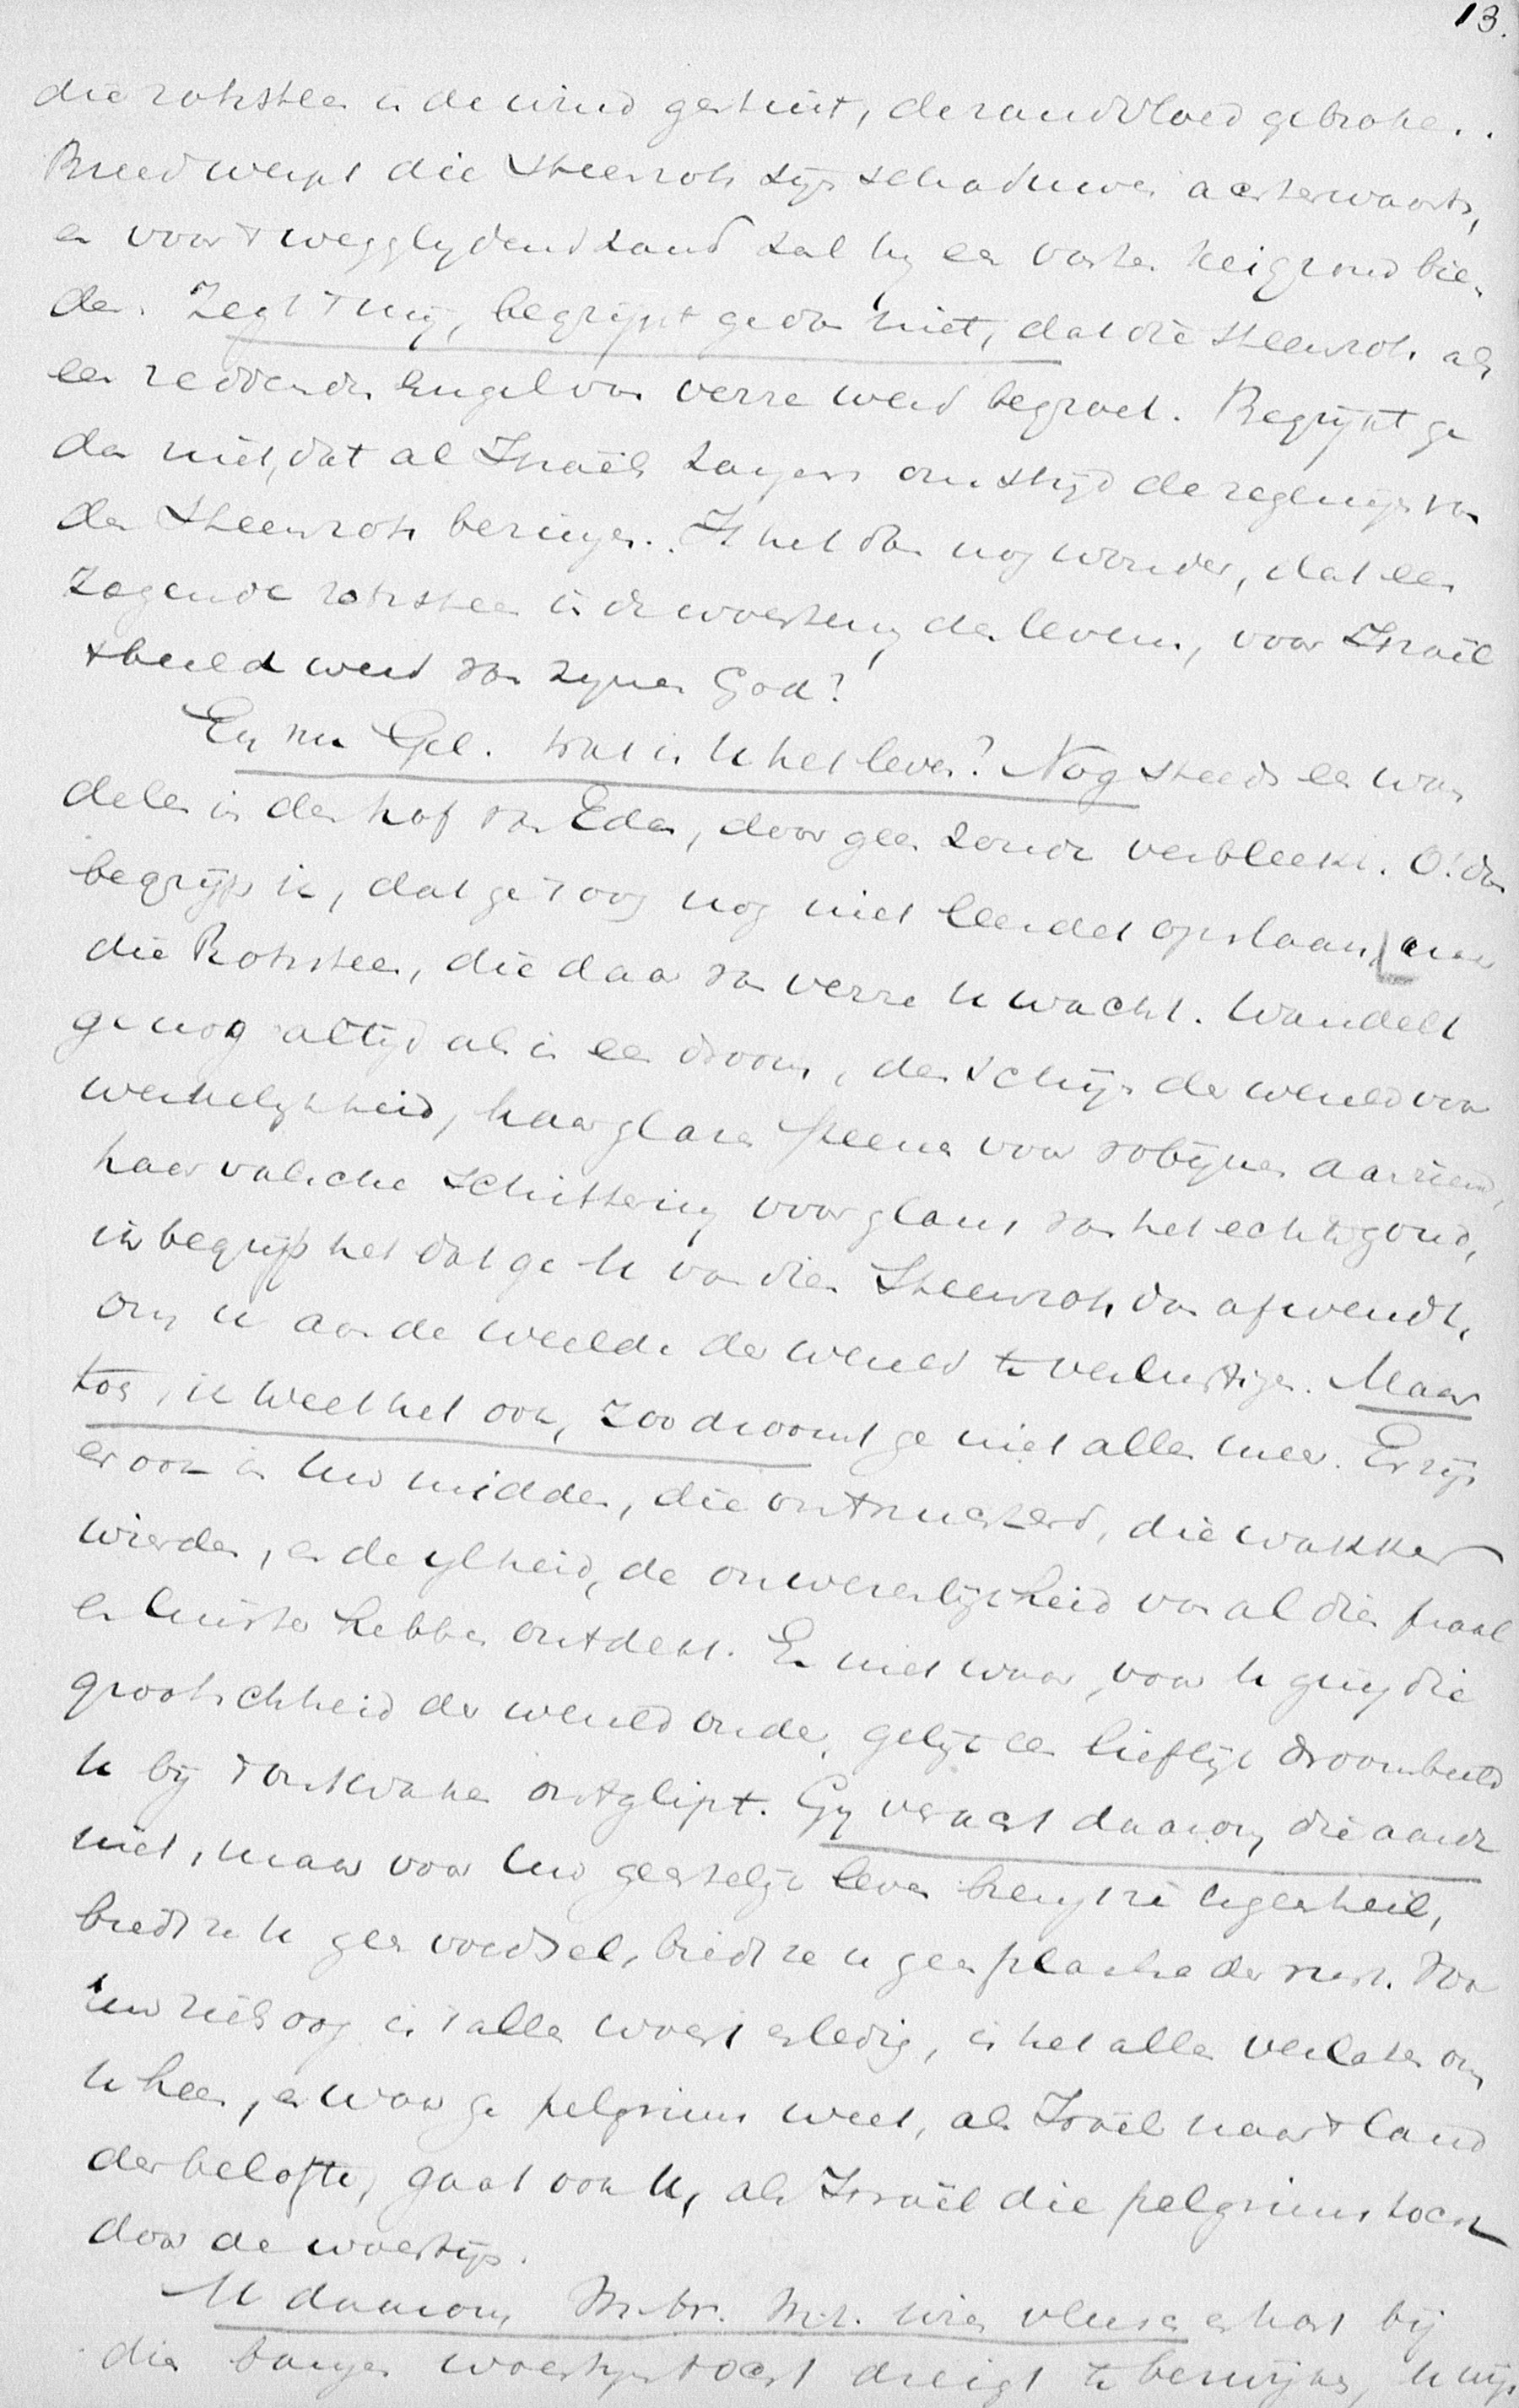 13.
die rotssteen is de wind gestuit, de zandvloed gebroken..
Breed werpt die steenrots zijn schaduwen achterwaarts,
en voor 't wegglijdend zand zal hij een vasten keigrond bie-
den. Zegt mij, begrijpt ge dan niet, dat die steenrots als
een reddende Engel van verre werd begroet. Begrijpt ge
dan niet, dat al Israëls zangers om strijd de zegeningen van
den Steenrots bezingen.. Is het dan nog wonder, dat een
rotssteen in de woesteny des levens, voor Israël
't beeld werd van zynen God?
En nu Gel. wat is U het leven? Nog steeds een wan-
delen in den hof van Eden, door geen zonde verbleekt. O! dan
begrijp ik, dat ge 't oog nog niet leerdet opslaan, naar
die Rotssteen, die daar van verre U wacht. Wandelt
ge nog altijd als in een droom, den schijn der wereld voor
werkelijkheid, haar glazen steenen voor robijnen aanziend,
haar valsche schittering voor glans van het echte goud,
ik begrijp het dat ge U van dien Steenrots dan afwendt,
om U aan de weelde der wereld te verlustigen. Maar
toe, ik weet het ook, zoo droomt ge niet allen meer. Er zijn
er ook in Uw midden, die ontnuchterd, die wakker
wierden, en de ylheid, de onwezenlijkheid van al dien praal
en luister hebben ontdekt. En niet waar, voor U ging die
grootschheid der wereld onder, gelijk een lieflijk droombeeld
U bij 't ontwaken ontglipt. Gy veracht daarom die aarde
niet, maar voor Uw geestelijk leven brengt ze U geen heil,
biedt ze U geen voedsel, biedt ze U geen plaatse der rust. Voor
Uw zielsoog is 't alles woest en ledig, is het alles verlaten om
U heen, en waar ge pelgrims weet, als Israël naar 't land
der belofte, gaat ook U, als Israël die pelgrimstocht
door de woestijn.
U daarom, M. br. M. z. wier vleesch en hart bij
dien bangen woestijntocht dreigt te bezwijken, U wijs